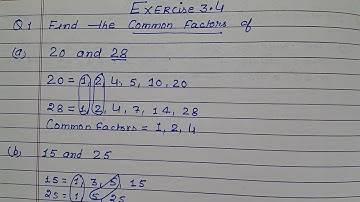 Exercise 3.4
Q.1 Find the Common Factors of
(a) 20 and 28
20 = 1, 2, 4, 5, 10, 20
28 = 1, 2, 4, 7, 14, 28
Common Factors = 1, 2, 4
(b) 15 and 25
15 = 1, 3, 5, 15
25 = 1, 5, 25